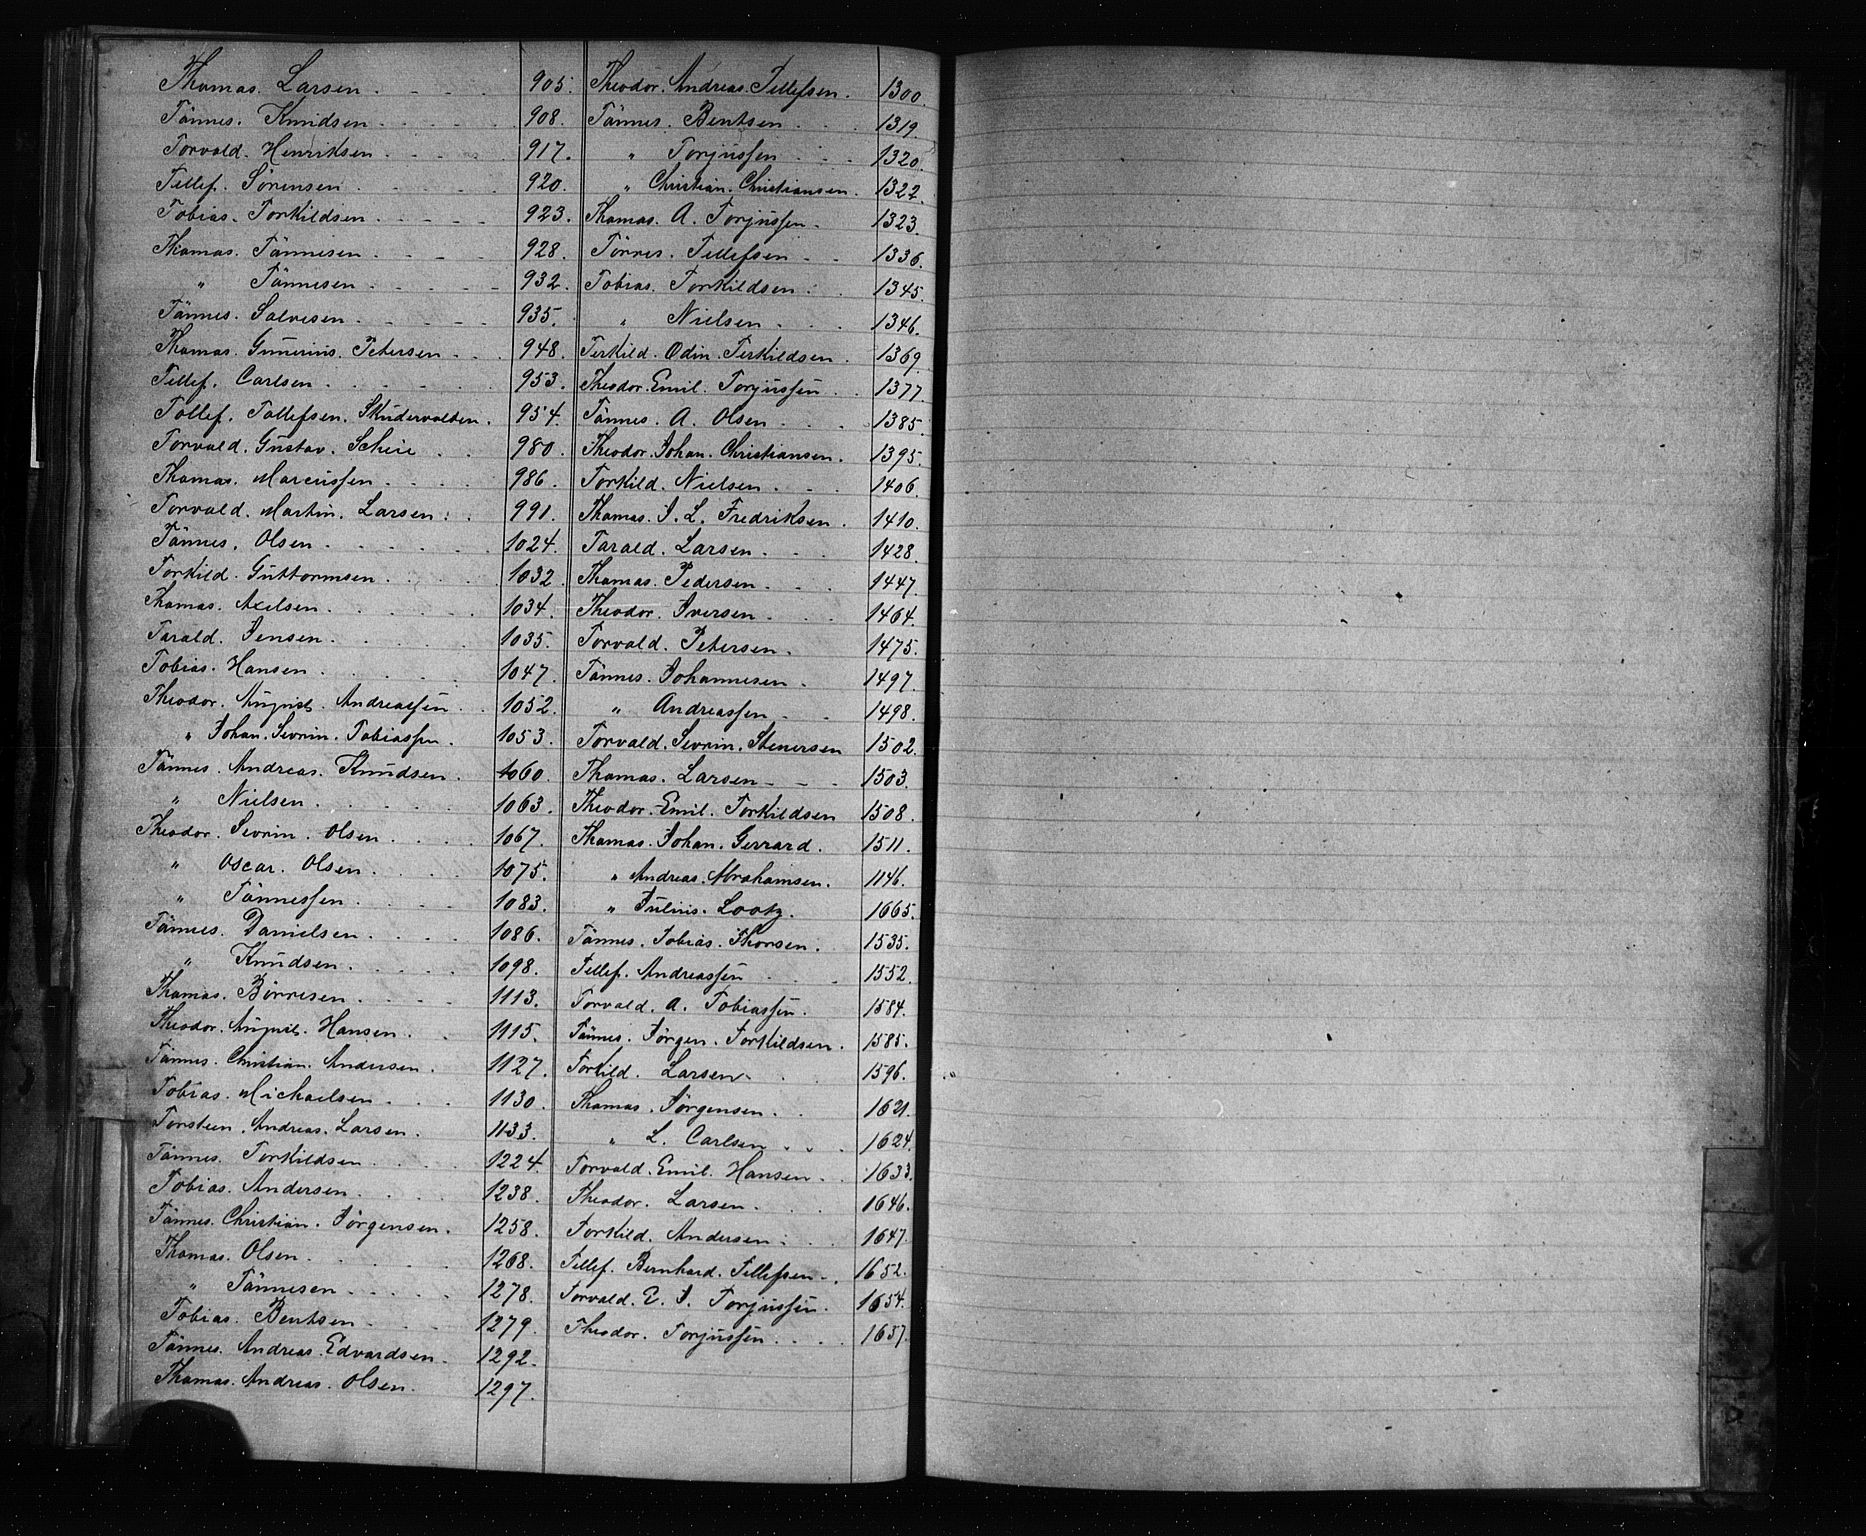 Thomas. Larsen. 905.
Tönnes. Knudsen. 908.
Torvald. Henriksen. 917.
Tellef. Sörensen. 920.
Tobias. Torkildsen. 923.
Thomas. Tönnesen. 928.
" Tönnesen. 932.
Tönnes. Salvesen. 935.
Thomas. Gunerius. Petersen. 948.
Tellef. Carlsen. 953.
Tollef. Tollefsen. Skudervolden. 954.
Torvald. Gustav. Scheie 980.
Thomas. Marcussen. 986.
Torvald. Martin. Larsen. 991.
Tönnes. Olsen. 1024.
Torkild. Guttormsen. 1032.
Thomas. Axelsen. 1034.
Tarald. Jensen. 1035.
Tobias. Hansen. 1047.
Theodor. August. Andreassen. 1052.
" Johan. Sevrin. Tobiassen. 1053.
Tönnes. Andreas. Knudsen. 1060.
" Nielsen. 1063.
Theodor. Sevrin. Olsen. 1067.
" Oscar. Olsen. 1075.
" Tönnessen. 1083.
Tönnes. Danielsen. 1086.
" Knudsen. 1098.
Thomas. Börresen. 1113.
Theodor. August. Hansen. 1115.
Tönnes. Christian. Andersen. 1127.
Tobias. Michaelsen. 1130.
Torsteen. Andreas. Larsen. 1133.
Tönnes. Torkildsen. 1224.
Tobias. Andersen. 1238.
Tönnes. Christian. Jörgensen. 1258.
Thomas. Olsen. 1268.
" Tönnesen. 1278.
Tobias. Bentsen. 1279.
Tönnes. Andreas. Edvardsen. 1292.
Thomas. Andreas. Olsen. 1297.
Theodor. Andreas. Tellefsen. 1300.
Tönnes. Bentsen. 1319.
" Torjussen. 1320.
" Christian. Christiansen. 1322.
Thomas. A. Torjussen. 1323.
Törres. Tellefsen. 1336.
Tobias. Torkildsen. 1345.
" Nielsen. 1346.
Terkild. Odin. Terkildsen. 1369.
Theodor. Emil. Torjussen. 1377.
Tönnes. A. Olsen. 1385.
Theodor. Johan. Christiansen. 1395.
Torkild. Nielsen. 1406.
Thomas. J. L. Fredriksen. 1410.
Tarald. Larsen. 1428.
Thomas. Pedersen. 1447.
Theodor. Iversen. 1464.
Torvald. Petersen. 1475.
Tönnes. Johannesen. 1497.
" Andreassen. 1498.
Torvald. Sevrin. Stenersen 1502.
Thomas. Larsen 1503.
Theodor. Emil. Torkildsen 1508.
Thomas. Johan. Gerrard. 1511.
" Andreas. Abrahamsen. 1146.
" Julius. Lootz. 1665.
Tönnes. Tobias. Thorsen. 1535.
Tellef. Andreassen 1552.
Torvald. A. Tobiassen. 1584.
Tönnes. Jörgen. Torkildsen. 1585.
Torkild. Larsen. 1596.
Thomas. Jörgensen. 1621.
" L. Carlsen 1624.
Torvald. Emil. Hansen. 1633
Theodor. Larsen. 1646.
Torkild. Andersen. 1647.
Tellef. Bernhard. Tellefsen. 1652.
Torvald. E. J. Torjussen. 1654.
Theodor. Torjussen. 1657.